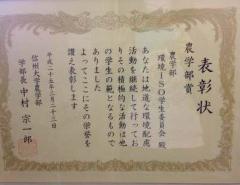 表彰状
農学部賞
農学部
環境ISO学生委員会 殿
あなたは地道な環境配慮
活動を継続して行ってお
りその積極的な活動は他
の学生の範となるもので
ありました
よってここにその栄誉を
讃え表彰します
平成二十五年三月二十三日
信州大学農学部
学部長 中村 宗一郎